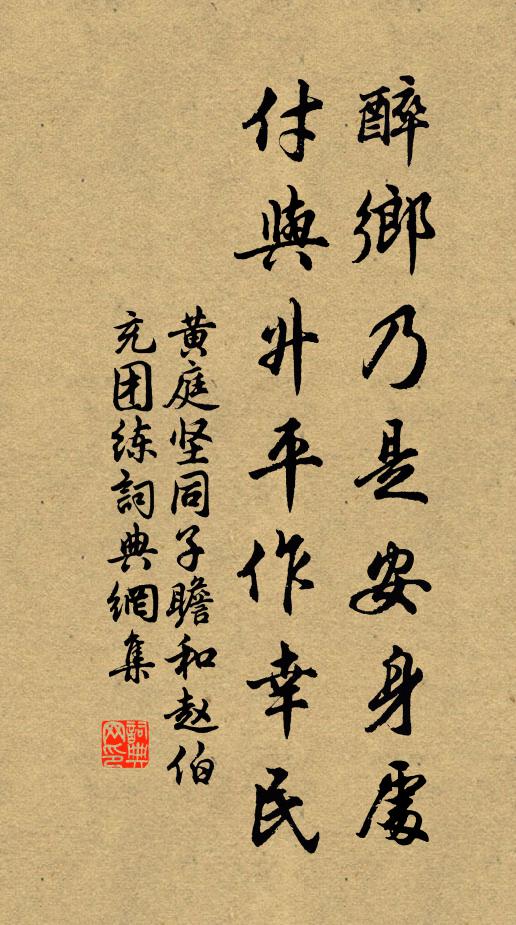 醉鄉乃是安身處
付與升平作幸民
黄庭坚同子瞻和赵伯
充团练詞典網集
詞典网印